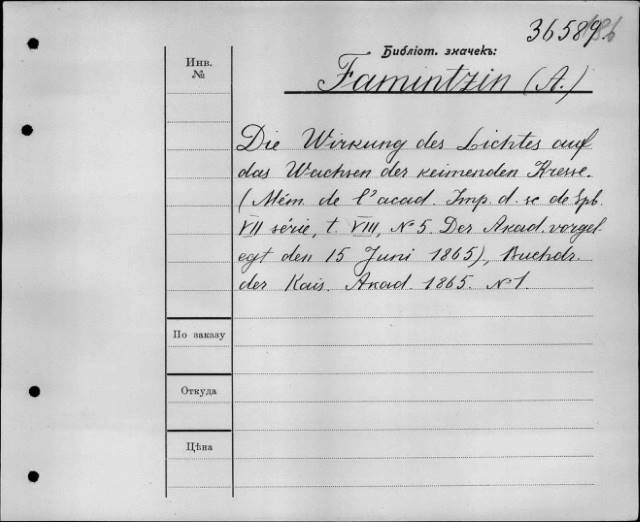 36589
Библіот. значекъ:
Инв.
№
Famintzin (A.)
Die Wirkung des Lichtes auf
das Wachsen der keimenden Kresse.
(Mém. de l'acad. Imp. d. sc de Spb.
VII série, t. VIII, № 5. Der Akad. vorgel-
egt den 15 Juni 1865), Buchdr.
der Kais. Akad. 1865. № 1.
По заказу
Откуда
Цѣна